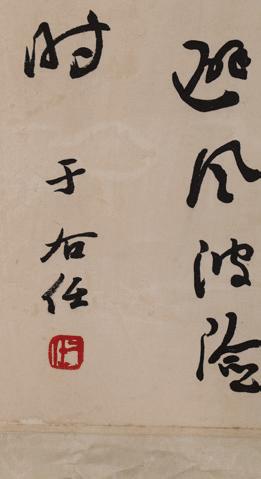 避风波险
时
于右任